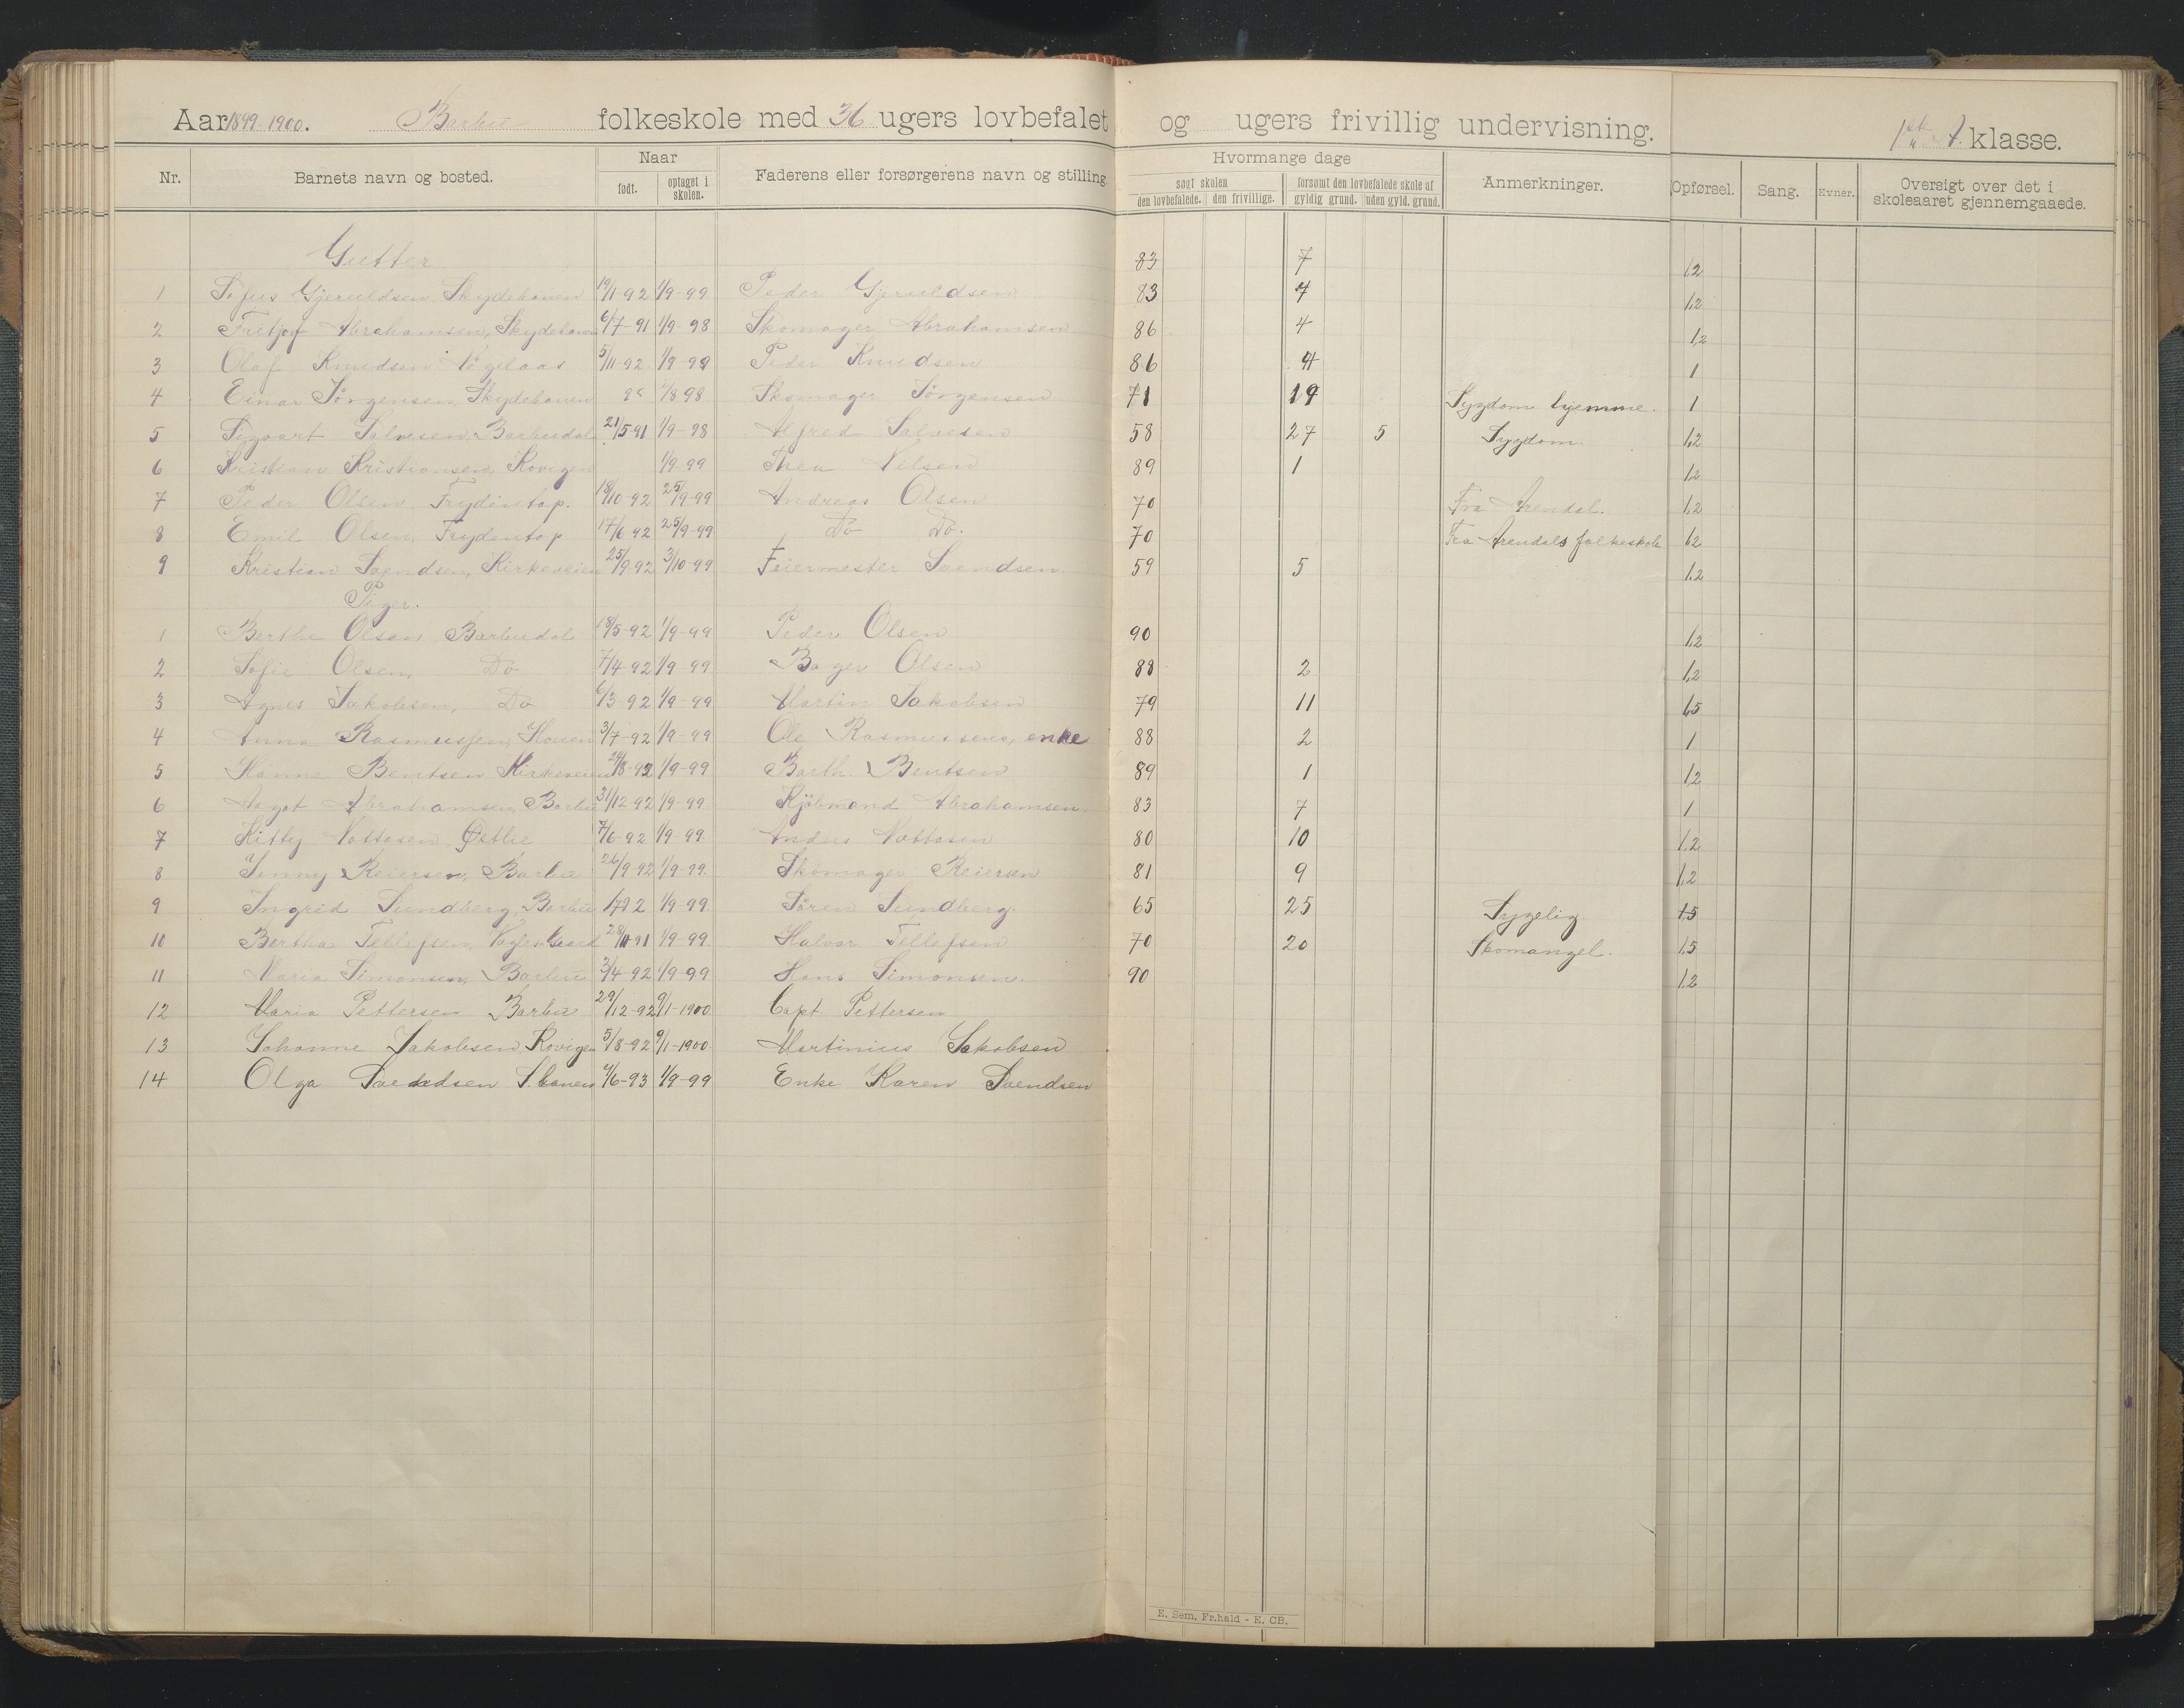 Aar 1899-1900. Barbu folkeskole med 36 ugers lovbefalet og ugers frivillig undervisning. 1ste A. klasse.
Nr. Barnets navn og bosted. Naar født. optaget i skolen. Faderens eller forsørgerens navn og stilling. Hvormange dage søgt skolen den lovbefalede. den frivillige. forsømt den lovbefalede skole af gyldig grund. uden gyld. grund. Anmerkninger. Opførsel. Sang. Evner. Oversigt over det i skoleaaret gjennemgaaede.
Gutter 83 7 1,2
1 Gjeruldsen Skydebanen 19/11-92 1/9-99 Peder Gjeruldsen 83 7 1,2
2 Fritjof Abrahamsen, Skydebanen 6/7-91 1/9-98 Skomager Abrahamsen 86 4 1,2
3 Olaf Knudsen 5/11-92 1/9-99 Peder Knudsen 86 4 1
4 Einar Jörgensen, Skydebanen 98 Skomager Jörgensen 71 19 Sygdom hjemme. 1
5 Sigvart Salvesen, Barbudal 21/5-91 1/9-98 Alfred Salvesen 58 27 5 Sygdom. 1,2
6 Kristian Kristiansen, Kovigen 1/9-99 Thea Nilsen 89 1 1,2
7 Peder Olsen Frydentop. 18/10-92 25/9-99 Andreas Olsen 70 Fra Arendal. 1,2
8 Emil Olsen, Frydentop 17/6-92 25/9-99 Do Do. 70 Fra Arendals folkeskole 1,2
9 Kristian Svendsen, Kirkeveien 25/9-92 3/10-99 Feiermester Svendsen. 59 5 1,2
Piger.
1 Berthe Olsen Barbudal 18/5-92 1/9-99 Peder Olsen 90 1,2
2 Sofie Olsen, Do 7/4-92 1/9-99 Bager Olsen 88 2 1,2
3 Agnes Jakobsen, Do 6/3-92 1/9-99 Martin Jakobsen 79 11 1,5
4 Anna Rasmussen, 3/7-92 1/9-99 Ole Rasmussens, enke 88 2 1
5 Hanna Bentsen Kirkeveien 1/9-99 Barth. Bentsen 89 1 1,2
6 Aagot Abrahamsen, Barbu 31/12-92 1/9-99. Kjöbmand Abrahamsen. 83 7 1
7 Kitty Østlie 7/6-92 1/9-99. Anders 80 10 1,2
8 Jenny Reiersen, Barbu 26/9-92 1/9-99. Skomager Reiersen 81 9 1,2
9 Ingrid Sundberg, Barbu 1/9-99. Sören Sundberg. 65 25 Sygelig. 1,5
10 Bertha Tellefsen, 28/11-91 1/9-99. Halvor Tellefsen 70 20 Skomangel. 1,5
11 Maria Simonsen, Barbu 3/4-92 1/9-99 Hans Simonsen. 90 1,2
12 Maria Pettersen Barbu 29/12-92 9/1-1900. Capt. Pettersen
13 Johanne Jakobsen, Kovigen 5/8-92 9/1-1900. Martinius Jakobsen
14 Olga Svendsen S.banen 9/6-93 1/9-99 Enke Karen Svendsen
E. Sem, Fr.hald - E. CB.